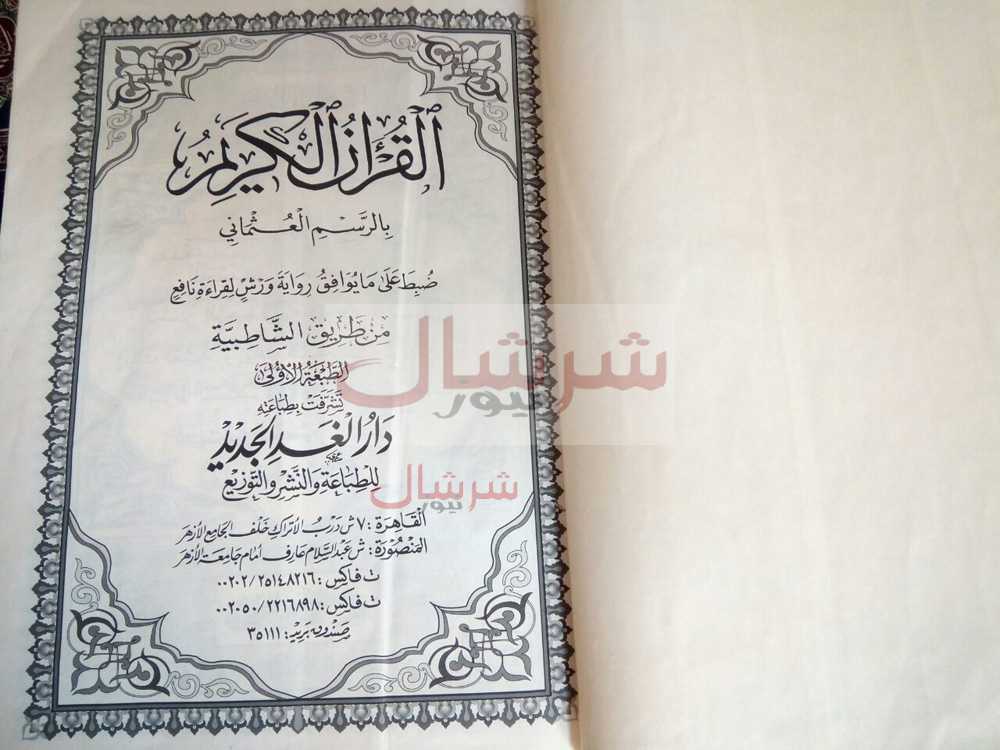 ٱلْقُرْءَانُ ٱلْكَرِيمُ
بِالرَّسْمِ الْعُثْمَانِي
ضُبِطَ عَلَى مَا يُوَافِقُ رِوَايَةَ وَرْشٍ لِقِرَاءَةِ نَافِعٍ
مِنْ طَرِيقِ الشَّاطِبِيَّةِ
الطَّبْعَةُ الْأُولَى
تَشَرَّفَتْ بِطِبَاعَتِهِ
دَارُ الْغَدِ الْجَدِيدِ
لِلطِّبَاعَةِ وَالنَّشْرِ وَالتَّوْزِيعِ
القَاهِرَة : ٧ ش دَرْبُ الأَتْرَاكِ خَلْف الجَامِع الأَزْهَر
المَنْصُورَة : ش عَبْدالسَّلَام عَارِف أَمَام جَامِعَة الأَزْهَر
ت فاكس : ٠٠٢٠٢/٢٥١٤٨٢١٦
ت فاكس : ٠٠٢٠٥٠/٢٢١٦٨٩٨
صندوق بريد : ٣٥١١١
شرشال
نيوز
شرشال
نيوز